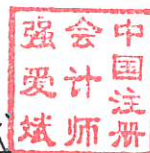 中国注册
会计师
强爱斌